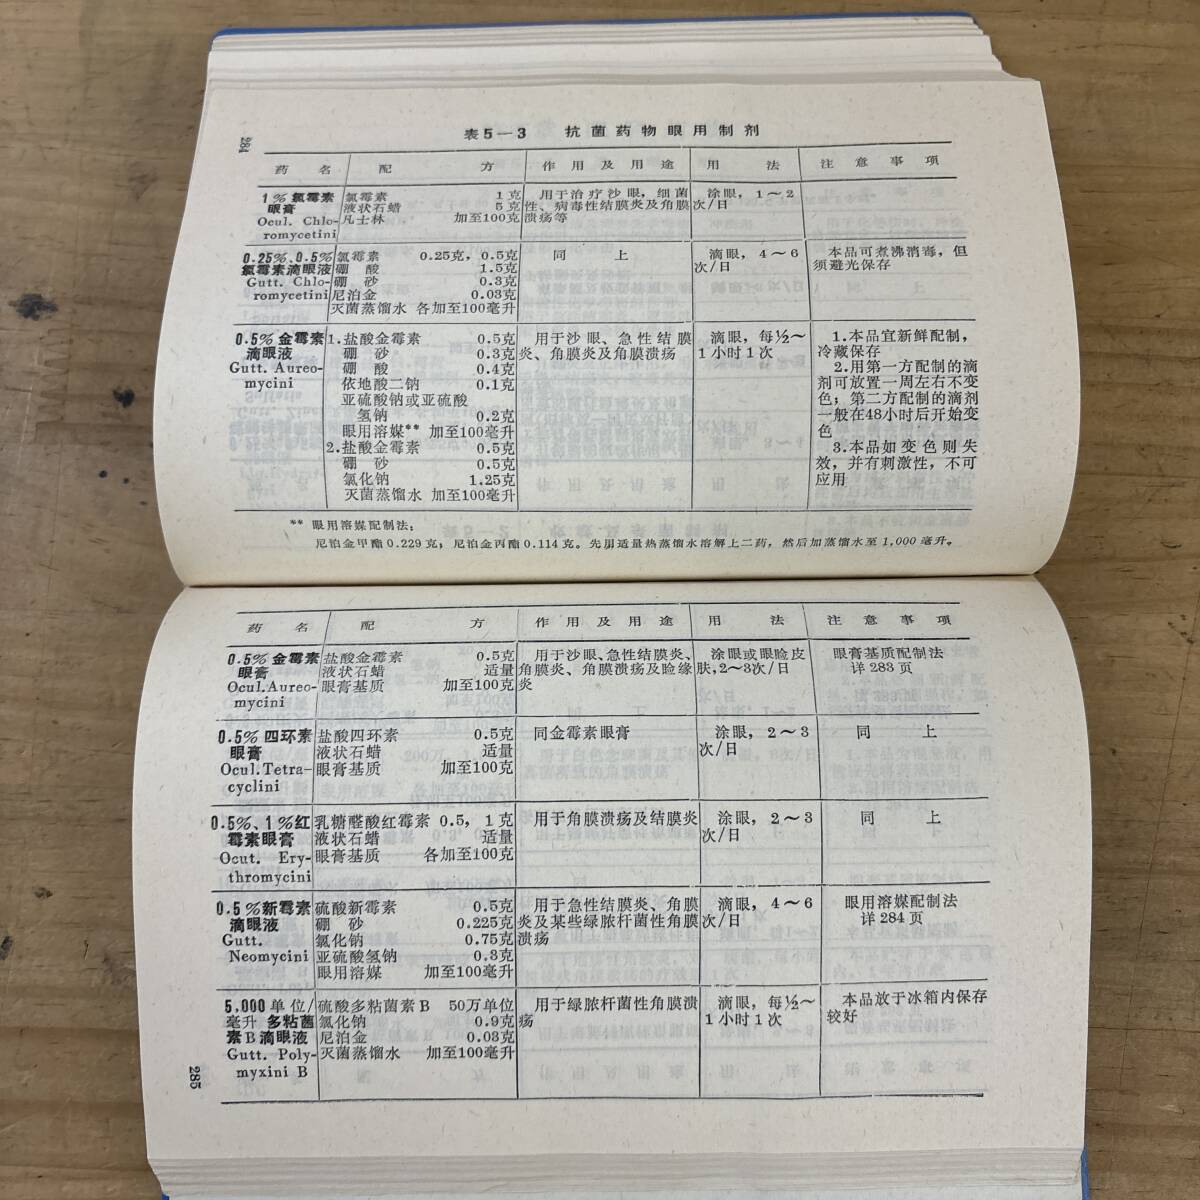 284
表5－3 抗菌药物眼用制剂
药名 配方 作用及用途 用法 注意事项
1％氯霉素 氯霉素 1克 用于治疗沙眼，细菌 涂眼，1～2
眼膏 液状石蜡 5克 性、病毒性结膜炎及角膜 次/日
Ocul. Chlo- 凡士林 加至100克 溃疡等
romycetini
0.25％、0.5％ 氯霉素 0.25克，0.5克 同上 滴眼，4～6 本品可煮沸消毒，但
氯霉素滴眼液 硼酸 1.5克 次/日 须避光保存
Gutt. Chlo- 硼砂 0.3克
romycetini 尼泊金 0.03克
灭菌蒸馏水 各加至100毫升
0.5％金霉素 1.盐酸金霉素 0.5克 用于沙眼、急性结膜 滴眼，每½～ 1.本品宜新鲜配制，
滴眼液 硼砂 0.3克 炎、角膜炎及角膜溃疡 1小时1次 冷藏保存
Gutt. Aureo- 硼酸 0.4克 2.用第一方配制的滴
mycini 依地酸二钠 0.1克 剂可放置一周左右不变
亚硫酸钠或亚硫酸 色；第二方配制的滴剂
氢钠 0.2克 一般在48小时后开始变
眼用溶媒** 加至100毫升 色
2.盐酸金霉素 0.5克 3.本品如变色则失
硼砂 0.5克 效，并有刺激性，不可
氯化钠 1.25克 应用
灭菌蒸馏水 加至100毫升
** 眼用溶媒配制法：
尼泊金甲酯0.229克；尼泊金丙酯0.114克。先用适量热蒸馏水溶解上二药，然后加蒸馏水至1,000毫升。
药名 配方 作用及用途 用法 注意事项
0.5％金霉素 盐酸金霉素 0.5克 用于沙眼、急性结膜炎、 涂眼或眼睑皮 眼膏基质配制法
眼膏 液状石蜡 适量 角膜炎、角膜溃疡及睑缘 肤，2～3次/日 详283页
Ocul. Aureo- 眼膏基质 加至100克 炎
mycini
0.5％四环素 盐酸四环素 0.5克 同金霉素眼膏 涂眼，2～3 同上
眼膏 液状石蜡 适量 次/日
Ocul. Tetra- 眼膏基质 加至100克
cyclini
0.5％、1％红 乳糖醛酸红霉素 0.5，1克 用于角膜溃疡及结膜炎 涂眼，2～3 同上
霉素眼膏 液状石蜡 适量 次/日
Ocut. Ery- 眼膏基质 各加至100克
thromycini
0.5％新霉素 硫酸新霉素 0.5克 用于急性结膜炎、角膜 滴眼，4～6 眼用溶媒配制法
滴眼液 硼砂 0.225克 炎及某些绿脓杆菌性角膜 次/日 详284页
Gutt. 氯化钠 0.75克 溃疡
Neomycini 亚硫酸氢钠 0.3克
眼用溶媒 加至100毫升
5,000单位/ 硫酸多粘菌素B 50万单位 用于绿脓杆菌性角膜溃 滴眼，每½～ 本品放于冰箱内保存
毫升多粘菌 氯化钠 0.9克 疡 1小时1次 较好
素B滴眼液 尼泊金 0.03克
Gutt. Poly- 灭菌蒸馏水 加至100毫升
myxini B
285